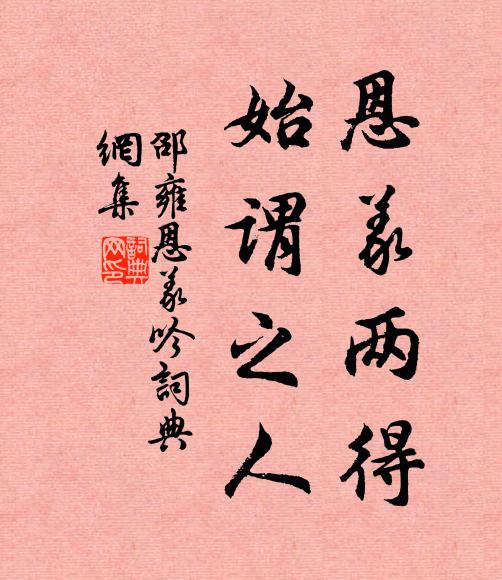 恩义两得
始谓之人
邵雍恩义吟词典
網集
詞典
网印